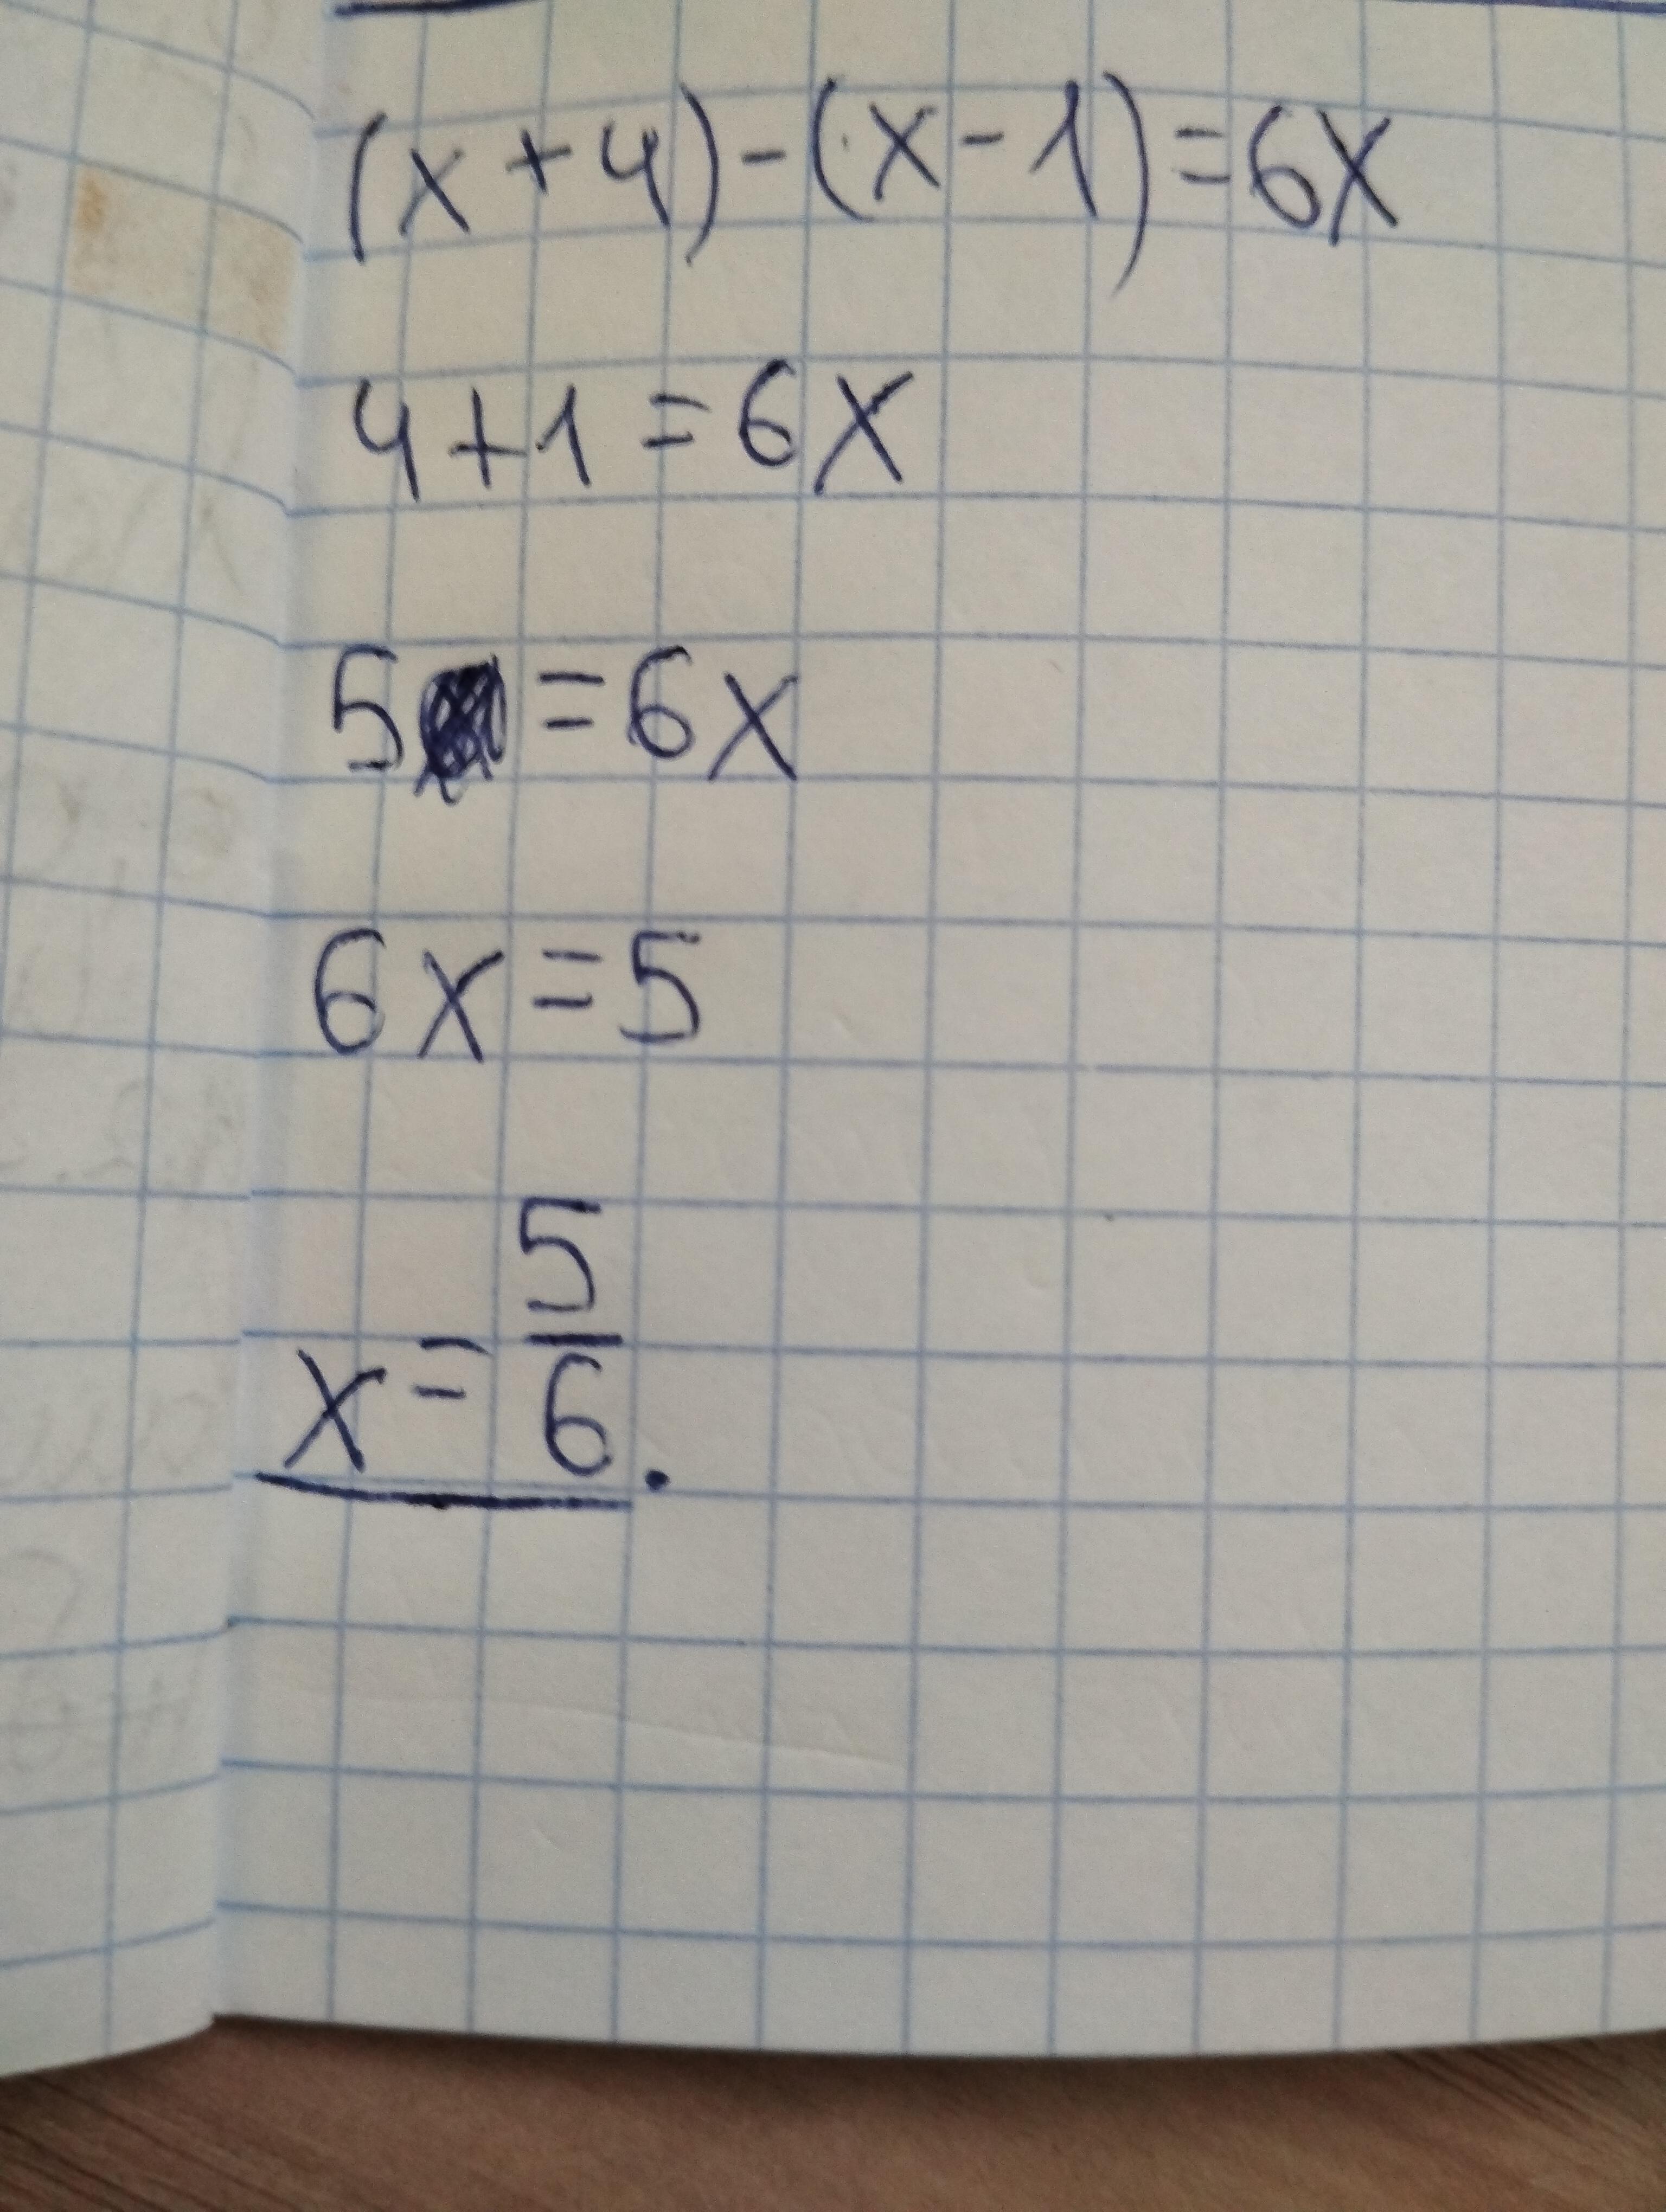 (x+4)-(x-1)=6x
4+1=6x
5=6x
6x=5
x=5/6.